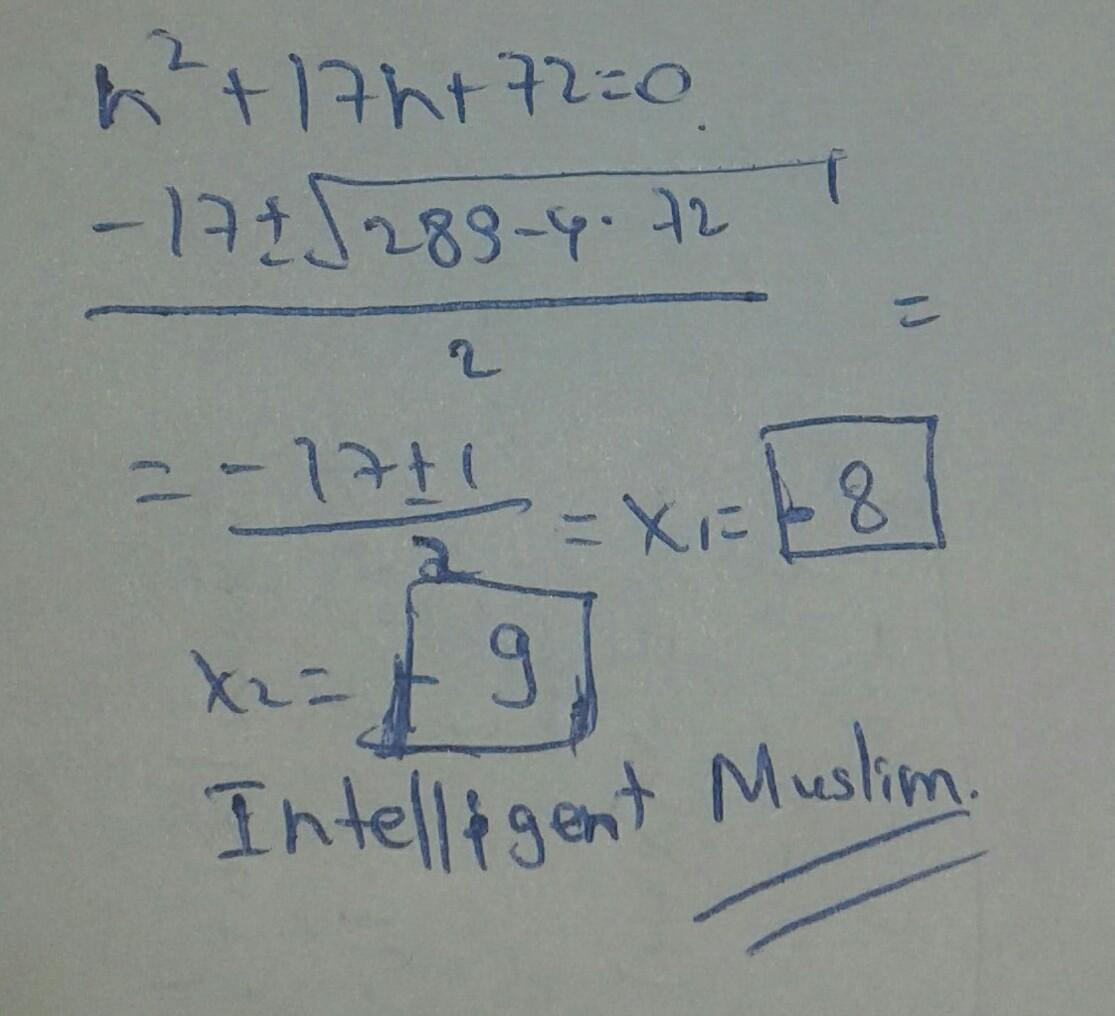 n²+17n+72=0.
-17±√289-4·72
2
=
=-17±1
2
=x₁=-8
x₂=-9
Intelligent Muslim.